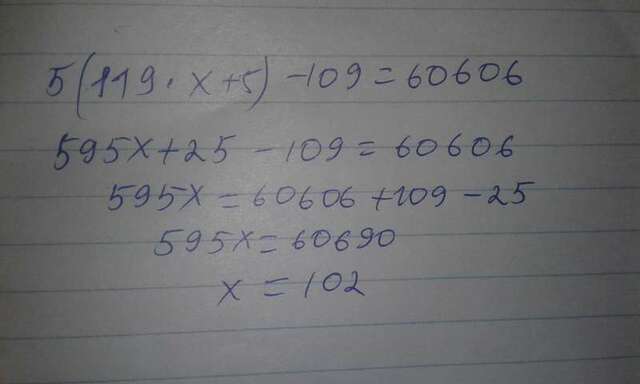 5(119·x+5)-109=60606
595x+25-109=60606
595x=60606+109-25
595x=60690
x=102